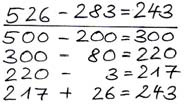 526 - 283 = 243
500 - 200 = 300
300 - 80 = 220
220 - 3 = 217
217 + 26 = 243